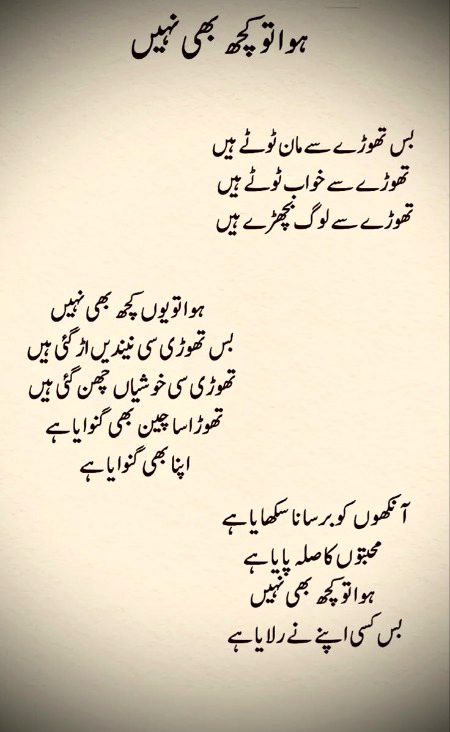 ہوا تو کچھ بھی نہیں
بس تھوڑے سے مان ٹوٹے ہیں
تھوڑے سے خواب ٹوٹے ہیں
تھوڑے سے لوگ بچھڑے ہیں
ہوا تو یوں کچھ بھی نہیں
بس تھوڑی سی نیندیں اڑ گئی ہیں
تھوڑی سی خوشیاں چھن گئی ہیں
تھوڑا سا چین بھی گنوایا ہے
اپنا بھی گنوایا ہے
آنکھوں کو برسانا سکھایا ہے
محبتوں کا صلہ پایا ہے
ہوا تو کچھ بھی نہیں
بس کسی اپنے نے رلایا ہے